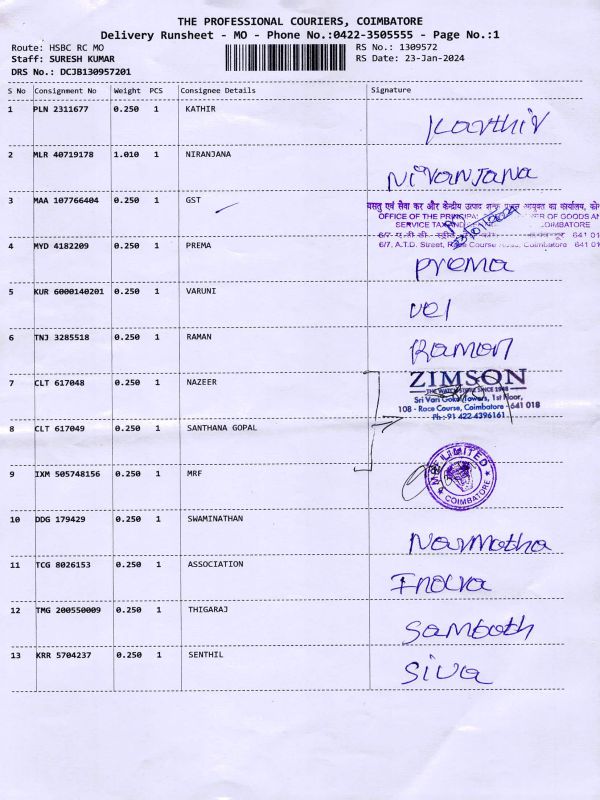 THE PROFESSIONAL COURIERS, COIMBATORE
Delivery Runsheet - MO - Phone No.:0422-3505555 - Page No.:1
Route: HSBC RC MO
RS No.: 1309572
Staff: SURESH KUMAR
RS Date: 23-Jan-2024
DRS No.: DCJB130957201
S No Consignment No Weight PCS Consignee Details Signature
1 PLN 2311677 0.250 1 KATHIR Karthik
2 MLR 40719178 1.010 1 NIRANJANA Niranjana
3 MAA 107766404 0.250 1 GST
वस्तु एवं सेवा कर और केन्द्रीय उत्पाद शुल्क आयुक्त का कार्यालय,
OFFICE OF THE PRINCIPAL OF GOODS AN
SERVICE TAX COIMBATORE
641 01
6/7, A.T.D. Street, Race Course Coimbatore 641 01
4 MYD 4182209 0.250 1 PREMA prema
5 KUR 6000140201 0.250 1 VARUNI vel
6 TNJ 3285518 0.250 1 RAMAN Raman
7 CLT 617048 0.250 1 NAZEER
ZIMSON
THE WATCH STORE SINCE 1948
Sri Vari Gokul Towers, 1st Floor,
108 - Race Course, Coimbatore - 641 018
Ph : 91 422 4396161
8 CLT 617049 0.250 1 SANTHANA GOPAL
9 IXM 505748156 0.250 1 MRF
MRF LIMITED
★ COIMBATORE ★
10 DDG 179429 0.250 1 SWAMINATHAN Narmatha
11 TCG 8026153 0.250 1 ASSOCIATION Indira
12 TMG 200550009 0.250 1 THIGARAJ Sambath
13 KRR 5704237 0.250 1 SENTHIL Siva